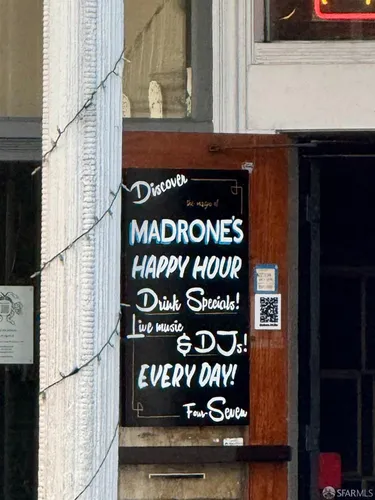 Discover
the magic of
MADRONE'S
HAPPY HOUR
Drink Specials!
Live music
& DJs!
EVERY DAY!
Four-Seven
SFARMLS